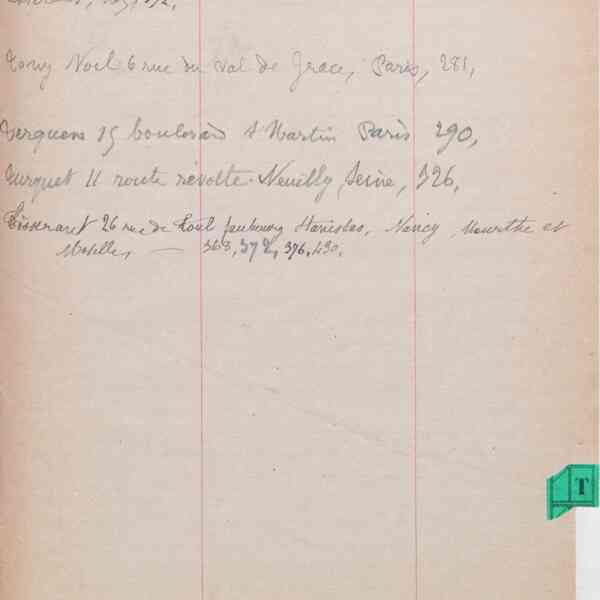 Tony Noel 6 rue du Val de Grace, Paris, 281,
Terquem 15 boulevard St Martin Paris 290,
Turquet 11 route révolte. Neuilly, Seine, 326,
Tisserant 26 rue de Toul faubourg Stanislas, Nancy, Meurthe et
Moselle, — 368, 372, 376, 430,
T